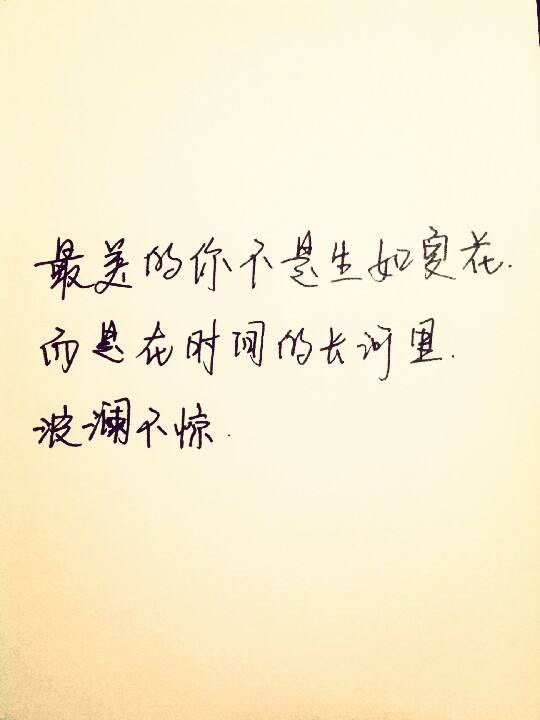 最美的你不是生如夏花.
而是在时间的长河里.
波澜不惊.